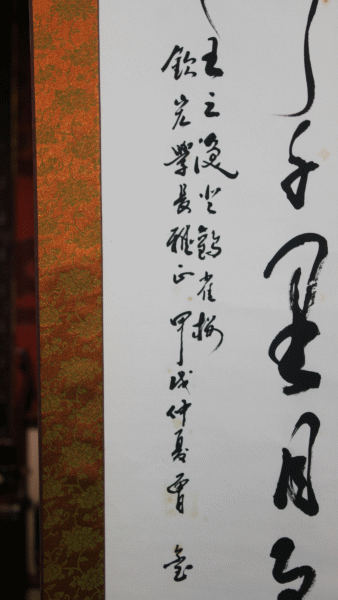 千里目
王之渙登鸛雀樓
欽岩學長雅正 甲戌仲夏